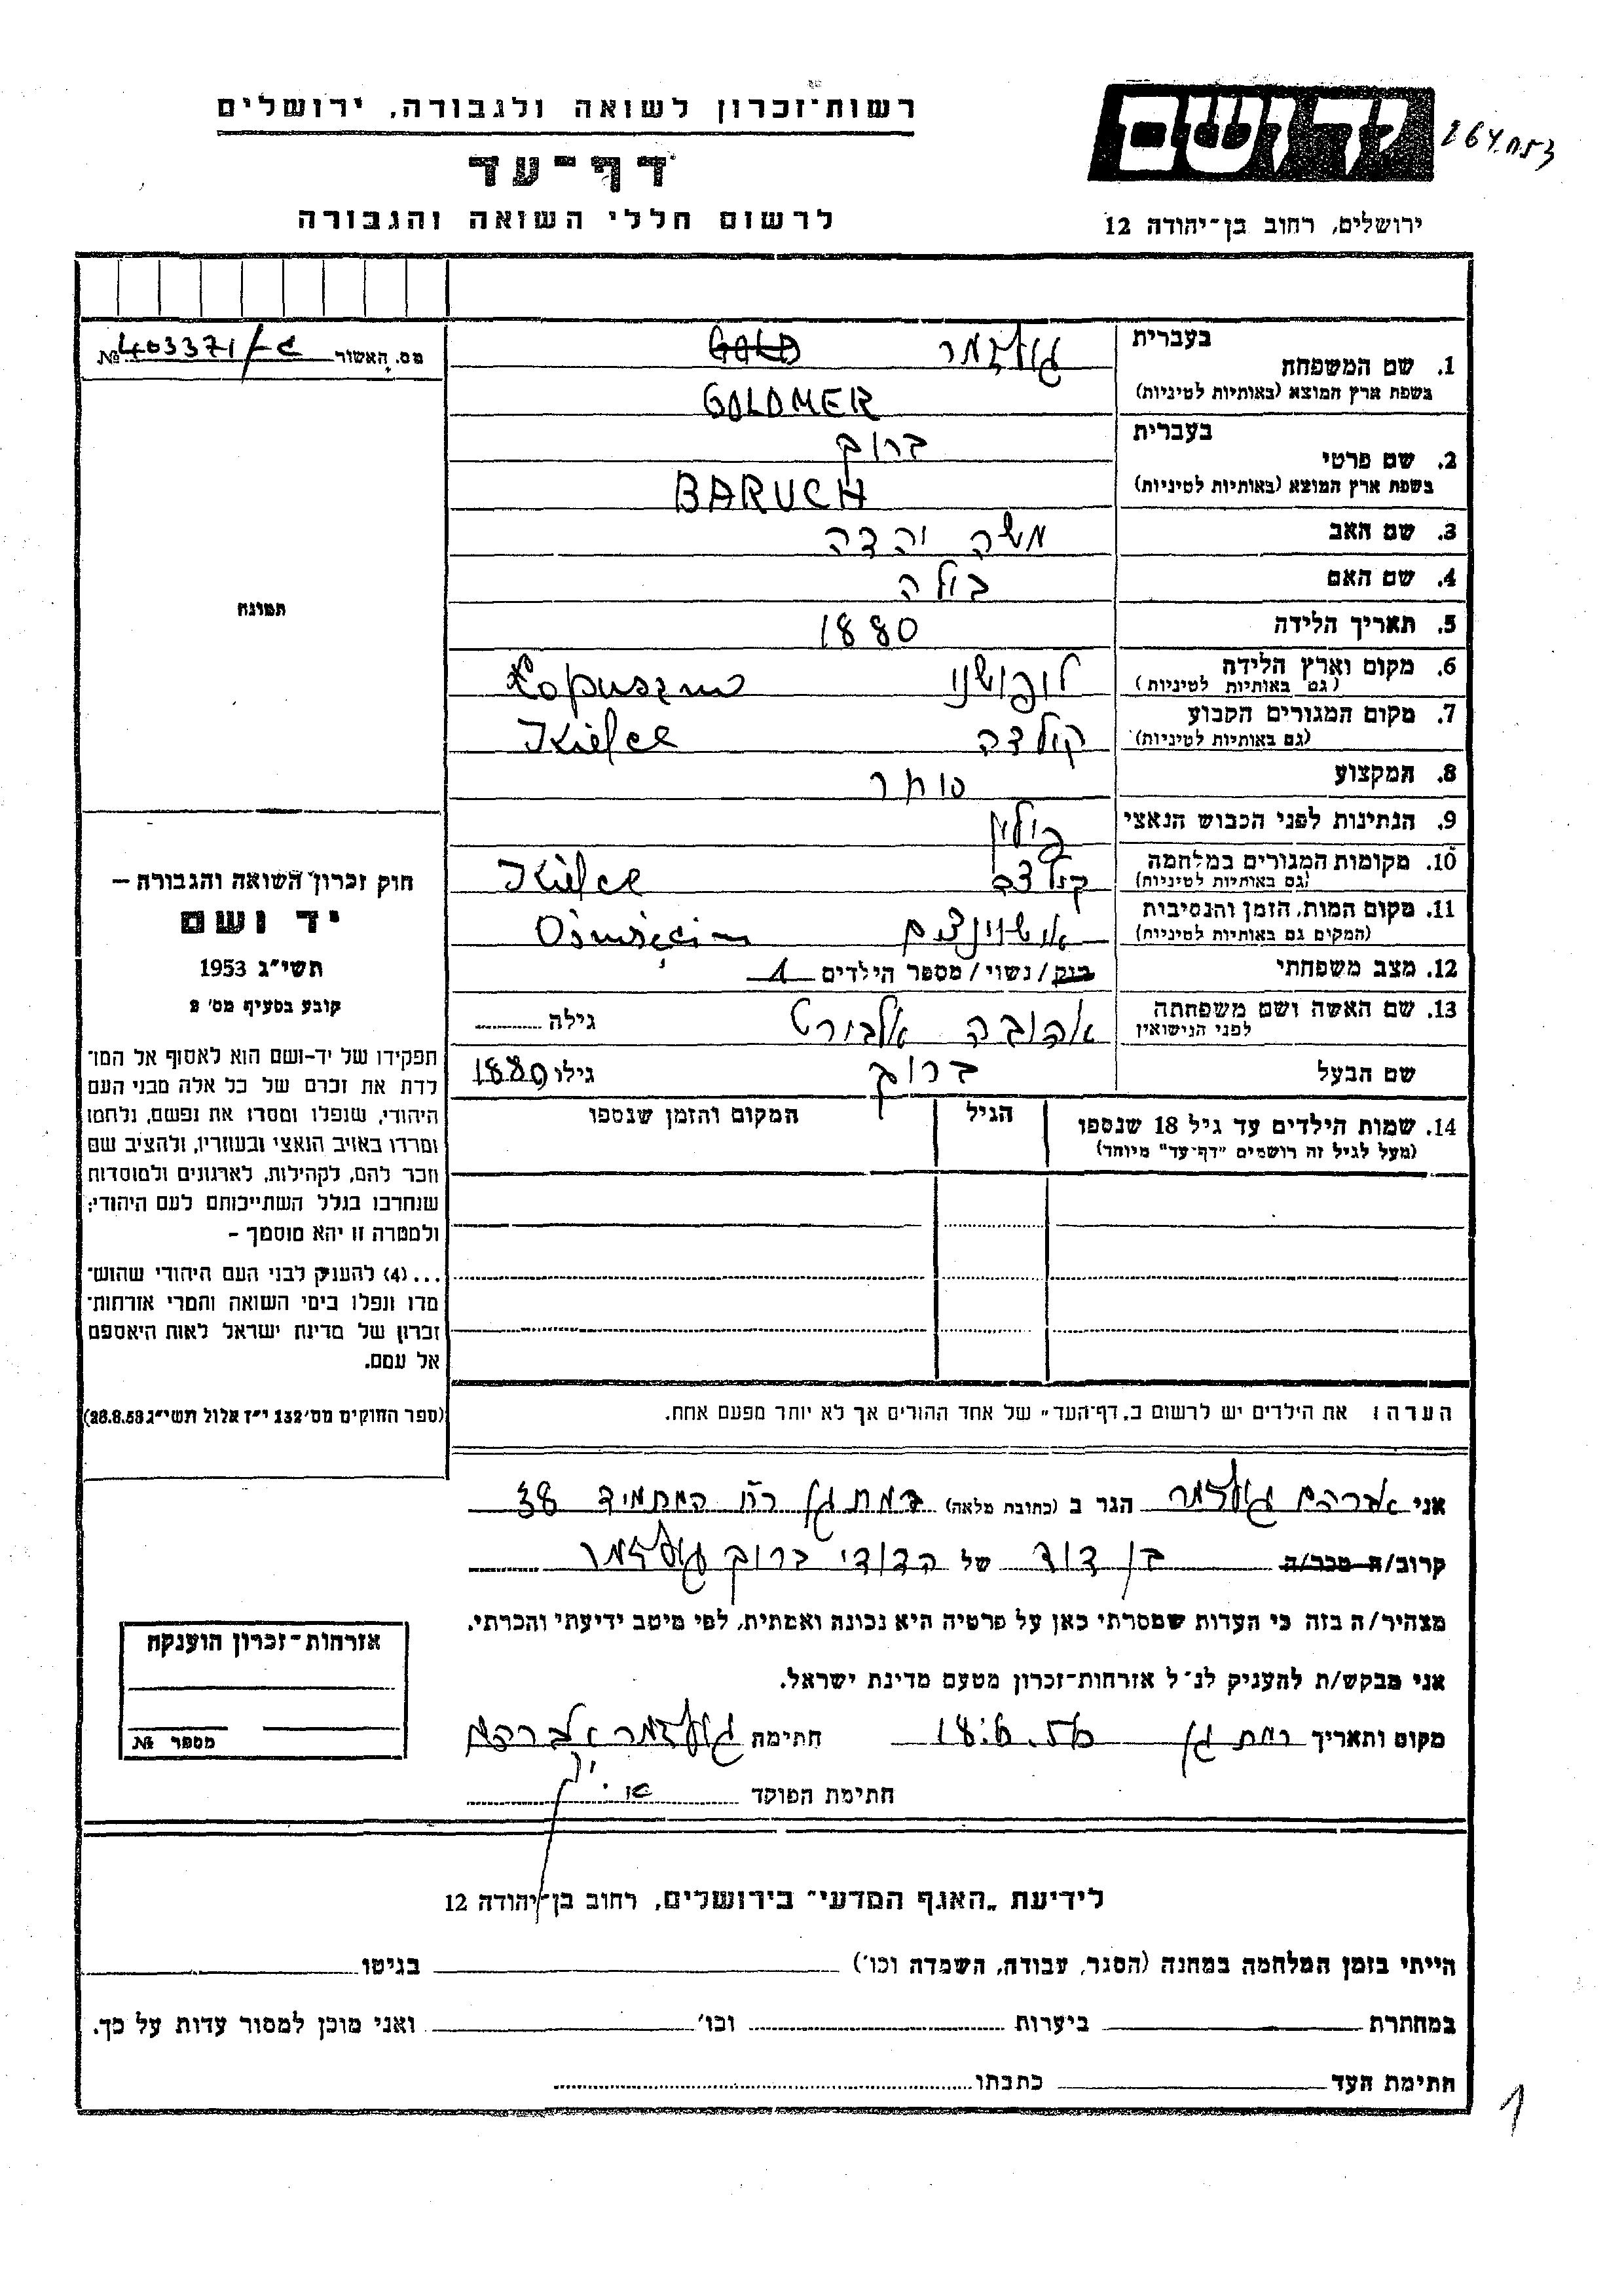 רשות־זכרון לשואה ולגבורה, ירושלים
דף־עד
לרשום חללי השואה והגבורה
יד ושם
ירושלים, רחוב בן־יהודה 12
מס. האשור № 403371/
1. שם המשפחה בעברית גולדמר GOLD
בשפת ארץ המוצא (באותיות לטיניות) GOLDMER
2. שם פרטי בעברית ברוך
בשפת ארץ המוצא (באותיות לטיניות) BARUCH
3. שם האב משה יהדה
4. שם האם בילה
5. תאריך הלידה 1880
6. מקום וארץ הלידה לופושנו Łopuszno
(גם באותיות לטיניות)
7. מקום המגורים הקבוע קילצה Kielce
(גם באותיות לטיניות)
8. המקצוע סוחר
9. הנתינות לפני הכבוש הנאצי פולין
10. מקומות המגורים במלחמה קילצה Kielce
(גם באותיות לטיניות)
11. מקום המות, הזמן והנסיבות אושוינצים Oświęcim
(המקום גם באותיות לטיניות)
12. מצב משפחתי רוק/נשוי/מספר הילדים 1
13. שם האשה ושם משפחתה אהובה גילה
לפני הנישואין
שם הבעל ברוך גילו 1880
14. שמות הילדים עד גיל 18 שנספו הגיל המקום והזמן שנספו
(מעל לגיל זה רושמים "דף־עד" מיוחד)
הערה: את הילדים יש לרשום ב„דף־העד" של אחד ההורים אך לא יותר מפעם אחת.
תמונה
חוק זכרון השואה והגבורה –
יד ושם
תשי״ג 1953
קובע בסעיף מס׳ 2
תפקידו של יד-ושם הוא לאסוף אל המו־
לדת את זכרם של כל אלה מבני העם
היהודי, שנפלו ומסרו את נפשם, נלחמו
ומרדו באויב הנאצי ובעוזריו, ולהציב שם
וזכר להם, לקהילות, לארגונים ולמוסדות
שנחרבו בגלל השתייכותם לעם היהודי;
ולמטרה זו יהא מוסמך –
...(4) להעניק לבני העם היהודי שהוש־
מדו ונפלו בימי השואה והמרי אזרחות־
זכרון של מדינת ישראל לאות היאספם
אל עמם.
(ספר החוקים מס׳ 132 י״ז אלול תשי״ג 28.8.53)
אני אברהם גולדמר הגר ב (כתובת מלאה) רמת גן רח המתמיד 38
קרוב/ה מכר/ה בן דוד של הדודי ברוך גולדמר
מצהיר/ה בזה כי העדות שמסרתי כאן על פרטיה היא נכונה ואמתית, לפי מיטב ידיעתי והכרתי.
אני מבקש/ת להעניק לנ״ל אזרחות־זכרון מטעם מדינת ישראל.
מקום ותאריך רמת גן חתימה גולדמר אברהם
חתימת הפוקד
אזרחות־זכרון הוענקה
מספר №
לידיעת „האגף המדעי" בירושלים, רחוב בן־יהודה 12
הייתי בזמן המלחמה במחנה (הסגר, עבודה, השמדה וכו׳) בגיטו
במחתרת ביערות וכו׳ ואני מוכן למסור עדות על כך.
חתימת העד כתבתו
1